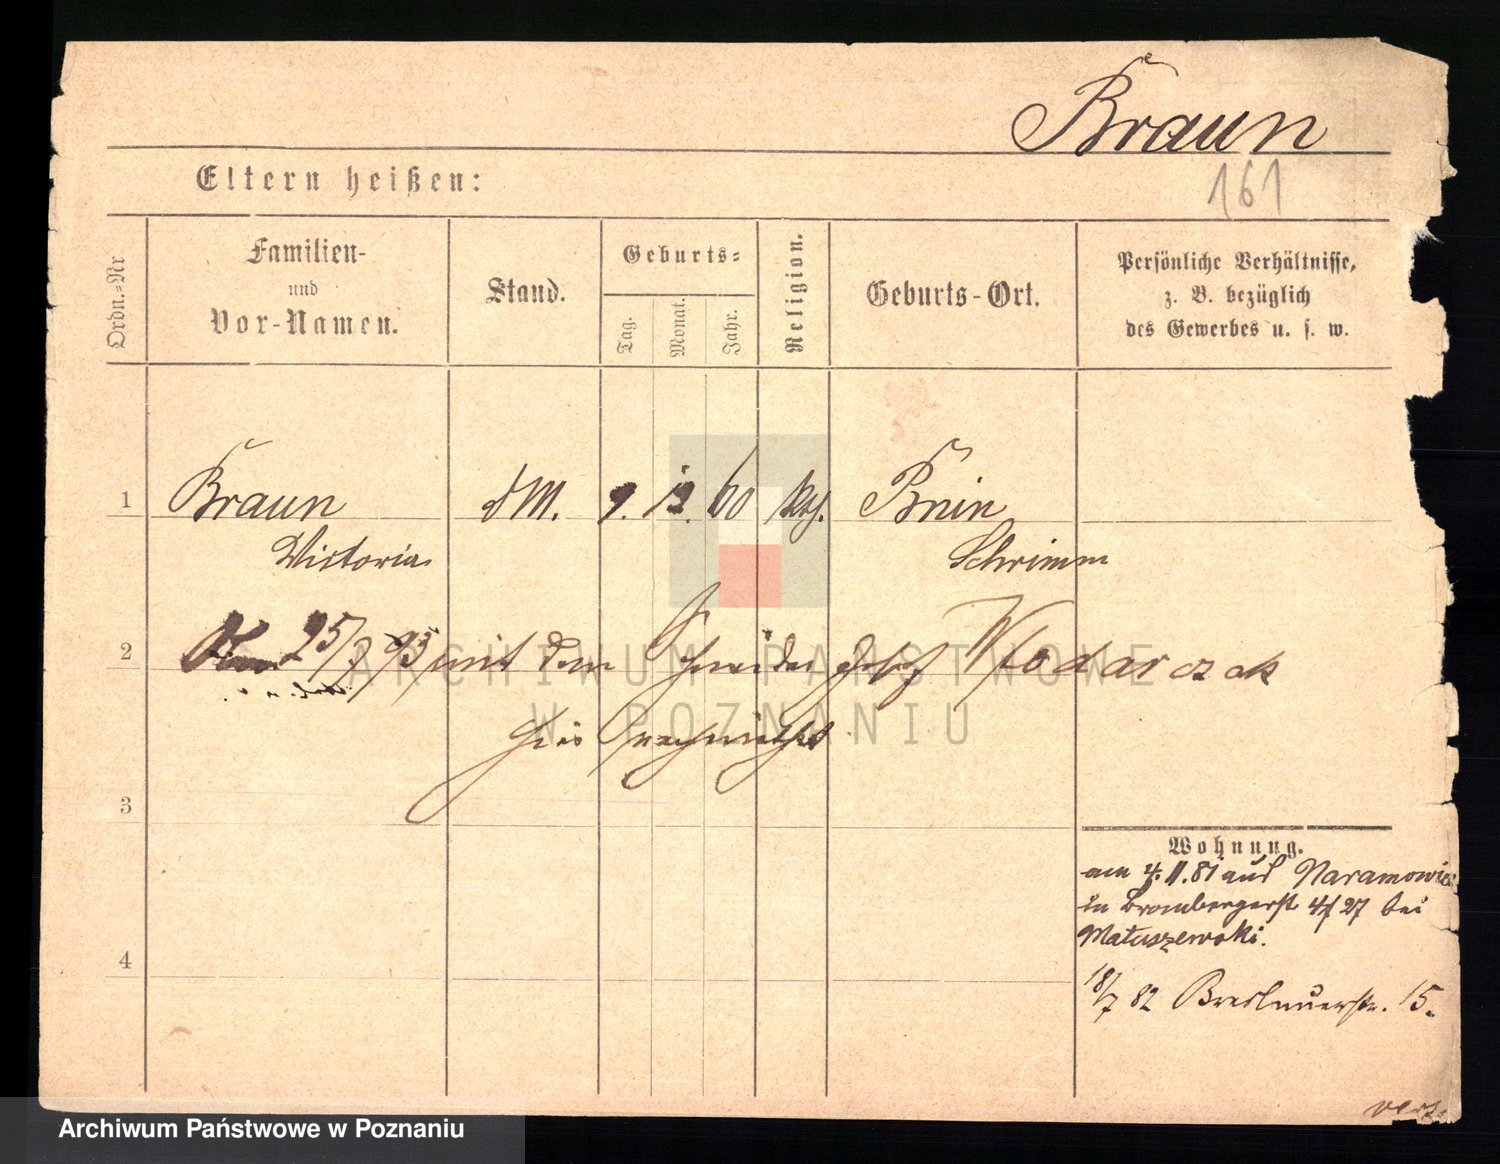 Braun
161
Eltern heißen:
Ordn.-Nr
Familien-
und
Vor-Namen.
Stand.
Geburts-
Tag.
Monat.
Jahr.
Religion.
Geburts-Ort.
Persönliche Verhältnisse,
z. B. bezüglich
des Gewerbes u. s. w.
1 Braun dM. 9. 12. 60 kth. Bnin
Victoria Schrimm
2 25/7 93 mit dem Schneider Wlodarczak
hier
3
4
Wohnung.
am 4.11.81 aus Naramowice
in Brombergerst 4/27 bei
Matuszewski.
18/7 82 Breslauerstr. 15.
ARCHIWUM PAŃSTWOWE
W POZNANIU
Archiwum Państwowe w Poznaniu